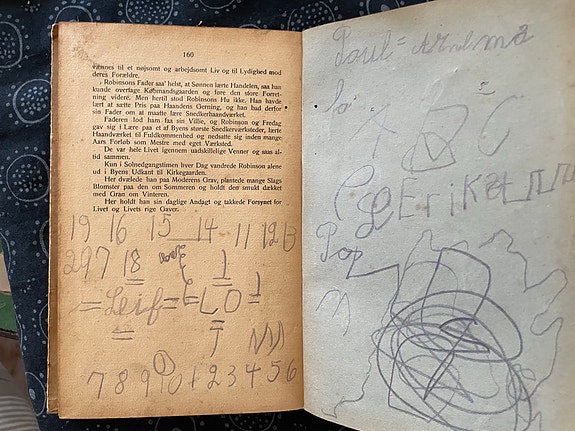 160
vænnes til et nøjsomt og arbejdsomt Liv og til Lydighed mod
deres Forældre.
Robinsons Fader saa' helst, at Sønnen lærte Handelen, saa han
kunde overtage Købmandsgaarden og føre den store Forret-
ning videre. Men hertil stod Robinsons Hu ikke. Han havde
lært at sætte Pris paa Haandens Gerning, og han bad derfor
sin Fader om at maatte lære Snedkerhaandværket.
Faderen lod ham faa sin Villie, og Robinson og Fredag
gav sig i Lære paa et af Byens største Snedkerværksteder, lærte
Haandværket til Fuldkommenhed og nedsatte sig inden mange
Aars Forløb som Mestre med eget Værksted.
De var hele Livet igennem uadskillelige Venner og saas al-
tid sammen.
Kun i Solnedgangstimen hver Dag vandrede Robinson alene
ud i Byens Udkant til Kirkegaarden.
Her dvælede han paa Moderens Grav, plantede mange Slags
Blomster paa den om Sommeren og holdt den smukt dækket
med Gran om Vinteren.
Her holdt han sin daglige Andagt og takkede Forsynet for
Livet og Livets rige Gaver.
19 16 15 14 11 12 13
297 18
=Leif=
7 8 9 10 + 2 3 4 5 6
Poul=
Pop